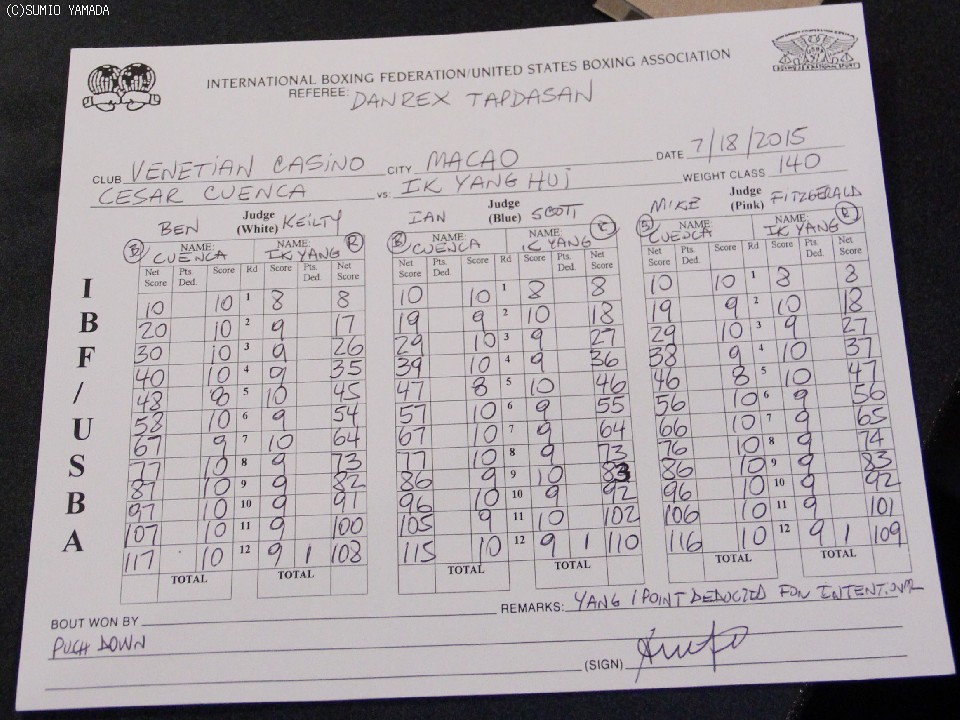 (C)SUMIO YAMADA
INTERNATIONAL BOXING FEDERATION/UNITED STATES BOXING ASSOCIATION
REFEREE: DANREX TAPDASAN
CLUB VENETIAN CASINO CITY MACAO DATE 7/18/2015
CESAR CUENCA VS: IK YANG HUI WEIGHT CLASS 140
BEN Judge (White) KEILTY IAN Judge (Blue) SCOTT MIKE Judge (Pink) FITZGERALD
B NAME: CUENCA NAME: IK YANG R B NAME: CUENCA NAME: IK YANG R B NAME: CUENCA NAME: IK YANG R
Net Score Pts. Ded. Score Rd Score Pts. Ded. Net Score Net Score Pts. Ded. Score Rd Score Pts. Ded. Net Score Net Score Pts. Ded. Score Rd Score Pts. Ded. Net Score
10 10 1 8 8 10 10 1 8 8 10 10 1 8 8
20 10 2 9 17 19 9 2 10 18 19 9 2 10 18
30 10 3 9 26 29 10 3 9 27 29 10 3 9 27
40 10 4 9 35 39 10 4 9 36 38 9 4 10 37
48 8 5 10 45 47 8 5 10 46 46 8 5 10 47
58 10 6 9 54 57 10 6 9 55 56 10 6 9 56
67 9 7 10 64 67 10 7 9 64 66 10 7 9 65
77 10 8 9 73 77 10 8 9 73 76 10 8 9 74
87 10 9 9 82 86 9 9 10 83 86 10 9 9 83
97 10 10 9 91 96 10 10 9 92 96 10 10 9 92
107 10 11 9 100 105 9 11 10 102 106 10 11 9 101
117 10 12 9 1 108 115 10 12 9 1 110 116 10 12 9 1 109
TOTAL TOTAL TOTAL TOTAL TOTAL TOTAL
IBF/USBA
BOUT WON BY REMARKS: YANG 1 POINT DEDUCTED FOR INTENTIONAL
PUCH DOWN
(SIGN)